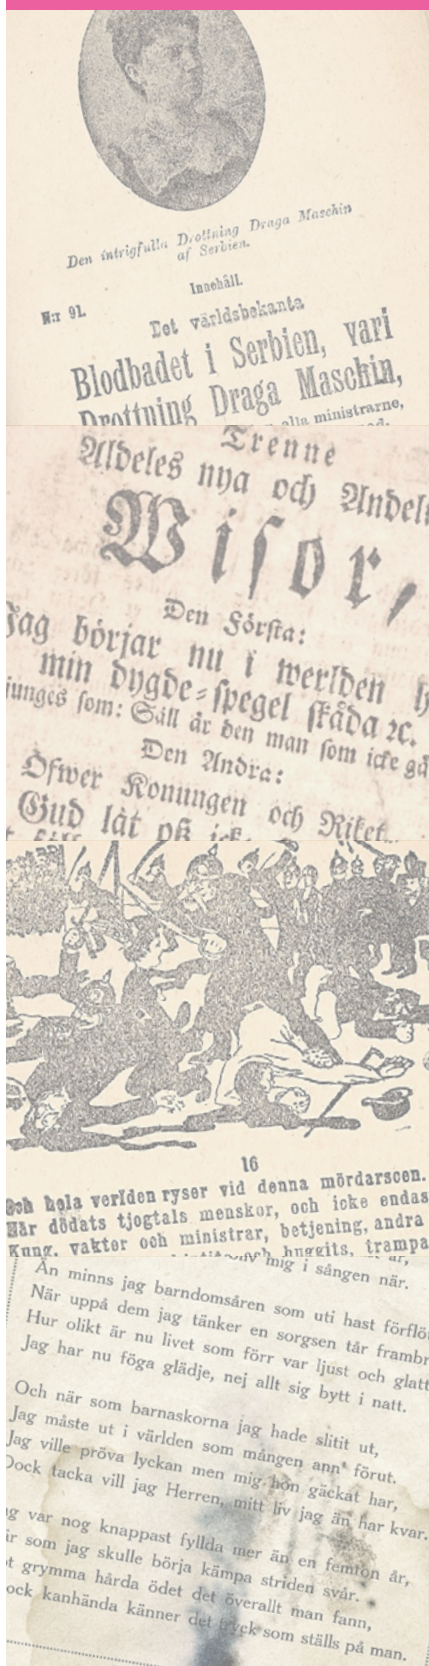 Den intrigfulla Drottning Draga Maschin
af Serbien.
N:r 91.
Innehåll.
Det världsbekanta
Blodbadet i Serbien, vari
Drottning Draga Maschin,
alla ministrarne,
Trenne
Aldeles nya och Andel
Wisor,
Den Första:
Jag börjar nu i werlden
min dygde-spegel skåda ꝛc.
junges som: Säll är den man som icke gå
Den Andra:
Öfwer Konungen och Riket
Gud låt oß ick
16
Och hela verlden ryser vid denna mördarscen.
När dödats tjogtals menskor, och icke endas
Kung, vakter och ministrar, betjening, andra
huggits, trampa
mig i sången när.
Än minns jag barndomsåren som uti hast förflö
När uppå dem jag tänker en sorgsen tår frambr
Hur olikt är nu livet som förr var ljust och glatt
Jag har nu föga glädje, nej allt sig bytt i natt.
Och när som barnaskorna jag hade slitit ut,
Jag måste ut i världen som mången ann' förut.
Jag ville pröva lyckan men mig hon gäckat har,
Dock tacka vill jag Herren, mitt liv jag än har kvar.
ag var nog knappast fyllda mer än en femton år,
är som jag skulle börja kämpa striden svår.
ot grymma hårda ödet det överallt man fann,
ock kanhända känner det tryck som ställs på man.